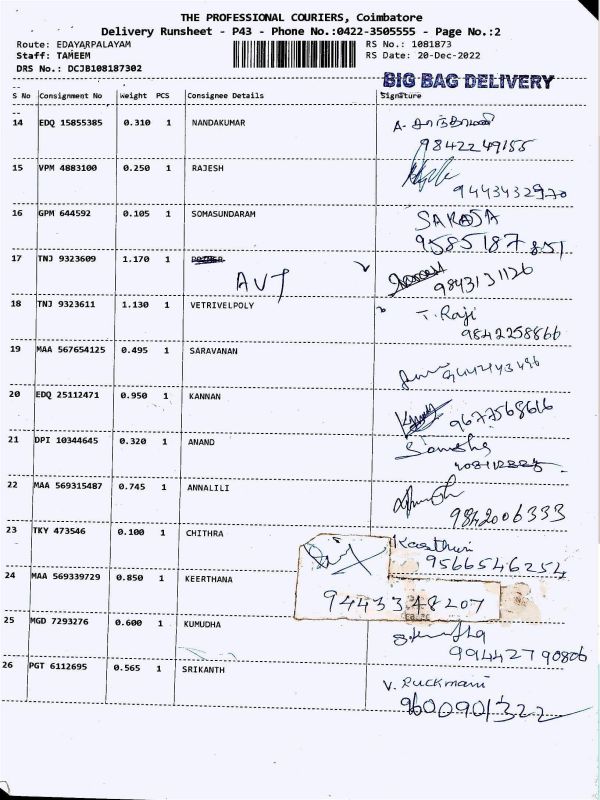 THE PROFESSIONAL COURIERS, Coimbatore
Delivery Runsheet - P43 - Phone No.:0422-3505555 - Page No.:2
Route: EDAYARPALAYAM RS No.: 1081873
Staff: TAMEEM RS Date: 20-Dec-2022
DRS No.: DCJB108187302
BIG BAG DELIVERY
S No Consignment No Weight PCS Consignee Details Signature
14 EDQ 15855385 0.310 1 NANDAKUMAR
9842249155
15 VPM 4883100 0.250 1 RAJESH
9443432970
16 GPM 644592 0.105 1 SOMASUNDARAM SARASA
9585187851
17 TNJ 9323609 1.170 1
AVT 9843131126
18 TNJ 9323611 1.130 1 VETRIVELPOLY T. Raji
9842258866
19 MAA 567654125 0.495 1 SARAVANAN
20 EDQ 25112471 0.950 1 KANNAN
9677568616
21 DPI 10344645 0.320 1 ANAND
22 MAA 569315487 0.745 1 ANNALILI
9842006333
23 TKY 473546 0.100 1 CHITHRA Kasthuri
9566546254
24 MAA 569339729 0.850 1 KEERTHANA
9443348207
25 MGD 7293276 0.600 1 KUMUDHA
99442790806
26 PGT 6112695 0.565 1 SRIKANTH V. Ruckmani
9600901322